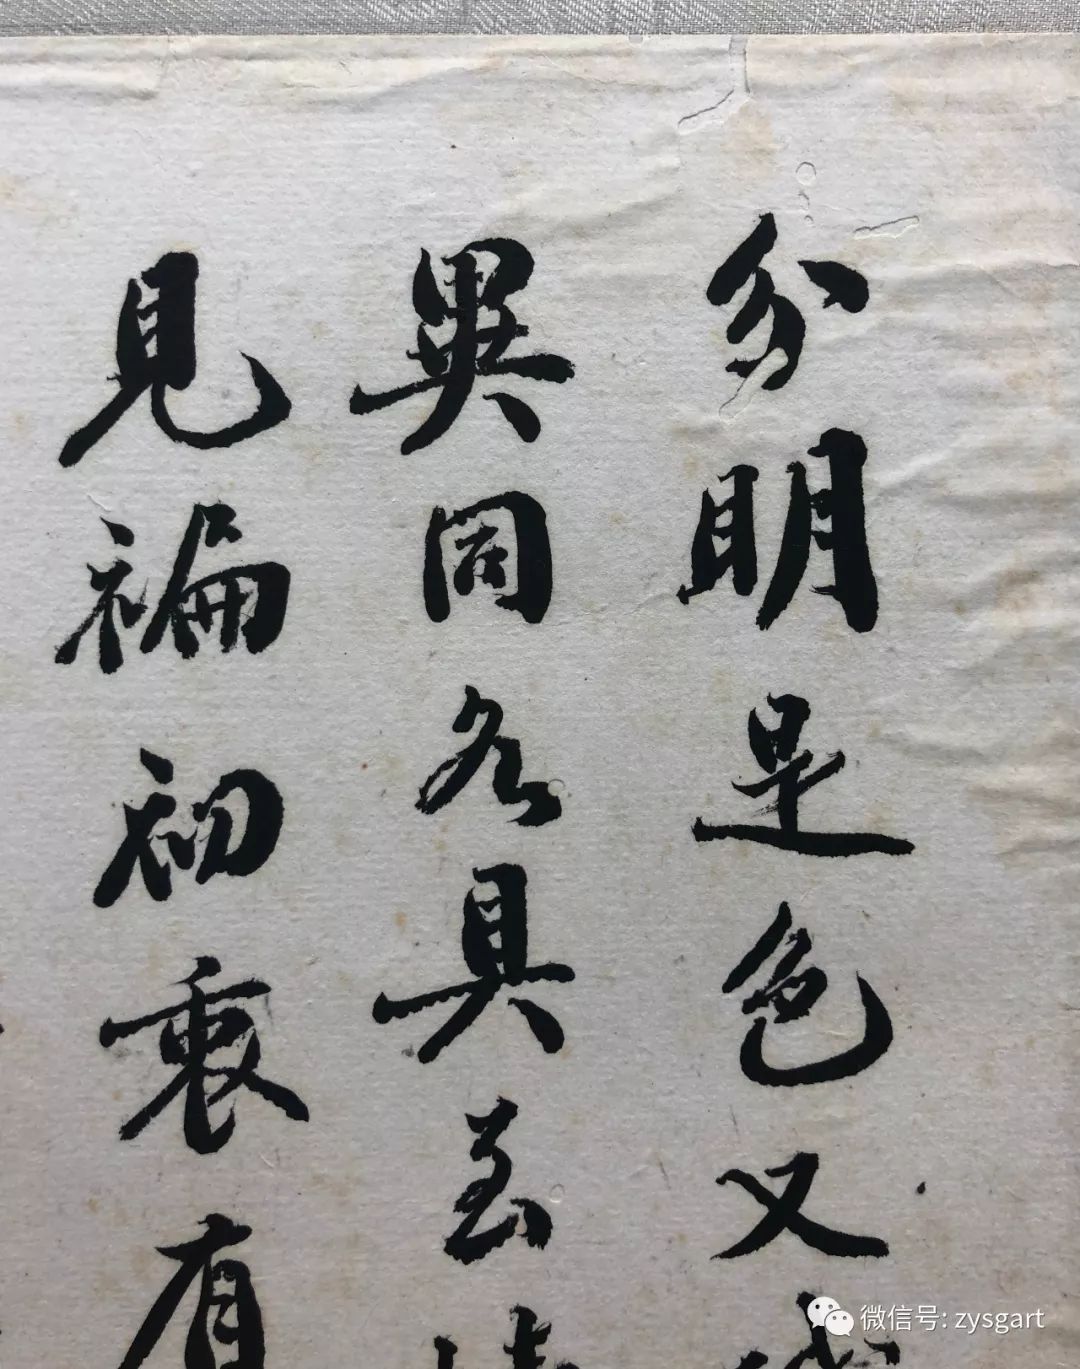 分明是色又
異同各具至
見褊初衷有
微信号: zysgart